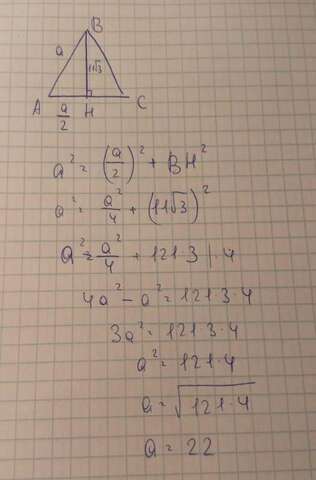 B
a
11√3
A
H
C
a/2
a² = (a/2)² + BH²
a² = a²/4 + (11√3)²
a² = a²/4 + 121·3 | ·4
4a² - a² = 121·3·4
3a² = 121·3·4
a² = 121·4
a = √121·4
a = 22